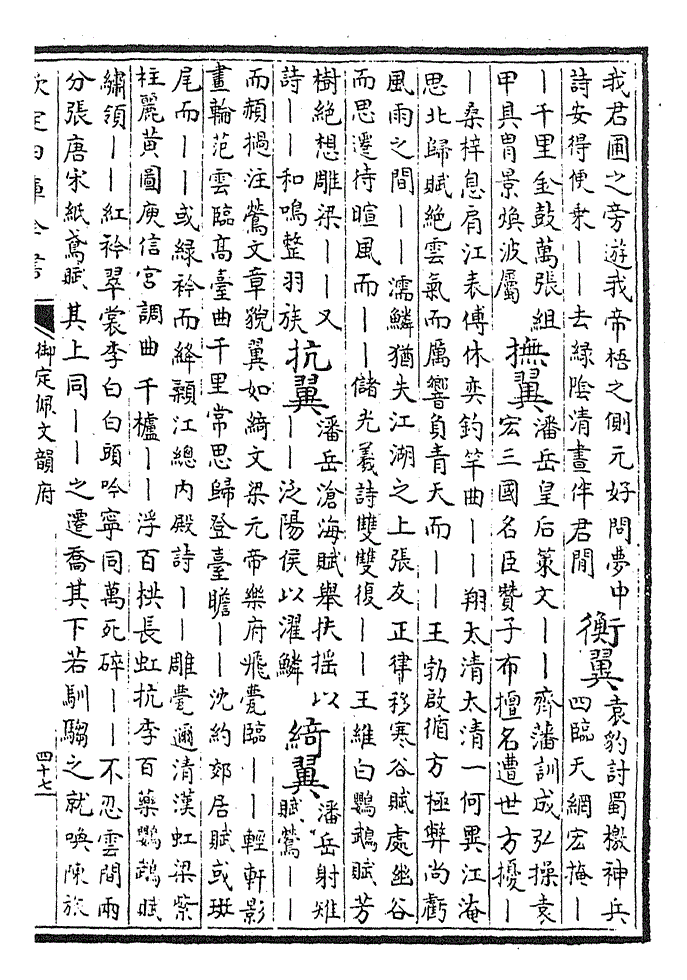 我君圃之旁遊我帝梧之側元好問夢中
詩安得便乗——去緑陰清晝伴君閒
衡翼
袁豹討蜀檄神兵
四臨天網宏掩—
—千里金鼓萬張組
甲具胄景煥波屬
撫翼
潘岳皇后策文——齊藩訓成弘操袁
宏三國名臣贊子布擅名遭世方擾—
—桑梓息肩江表傅休奕釣竿曲——翔太清太清一何異江淹
思北歸賦絶雲氣而厲響負青天而——王勃啟循方極弊尚虧
風雨之間——濡鱗猶失江湖之上張友正律移寒谷賦處幽谷
而思遷待暄風而——儲光羲詩雙雙復——王維白鸚鵡賦芳
樹絶想雕梁——又
詩——和鳴整羽族
抗翼
潘岳滄海賦舉扶揺以
——泛陽侯以濯鱗
綺翼
潘岳射雉
賦鶯——
而頳撾注鶯文章貌翼如綺文梁元帝樂府飛甍臨——輕軒影
畫輪范雲臨髙臺曲千里常思歸登臺瞻——沈約郊居賦或班
尾而——或緑衿而絳顙江總内殿詩——雕甍邇清漢虹梁紫
柱麗黄圖庾信宫調曲千櫨——浮百栱長虹抗李百藥鸚鵡賦
繡領——紅衿翠裳李白白頭吟寧同萬死碎——不忍雲間兩
分張唐宋紙鳶賦其上同——之遷喬其下若馴騶之就喚陳旅
欽定四庫全書
御定佩文韻府
四十七